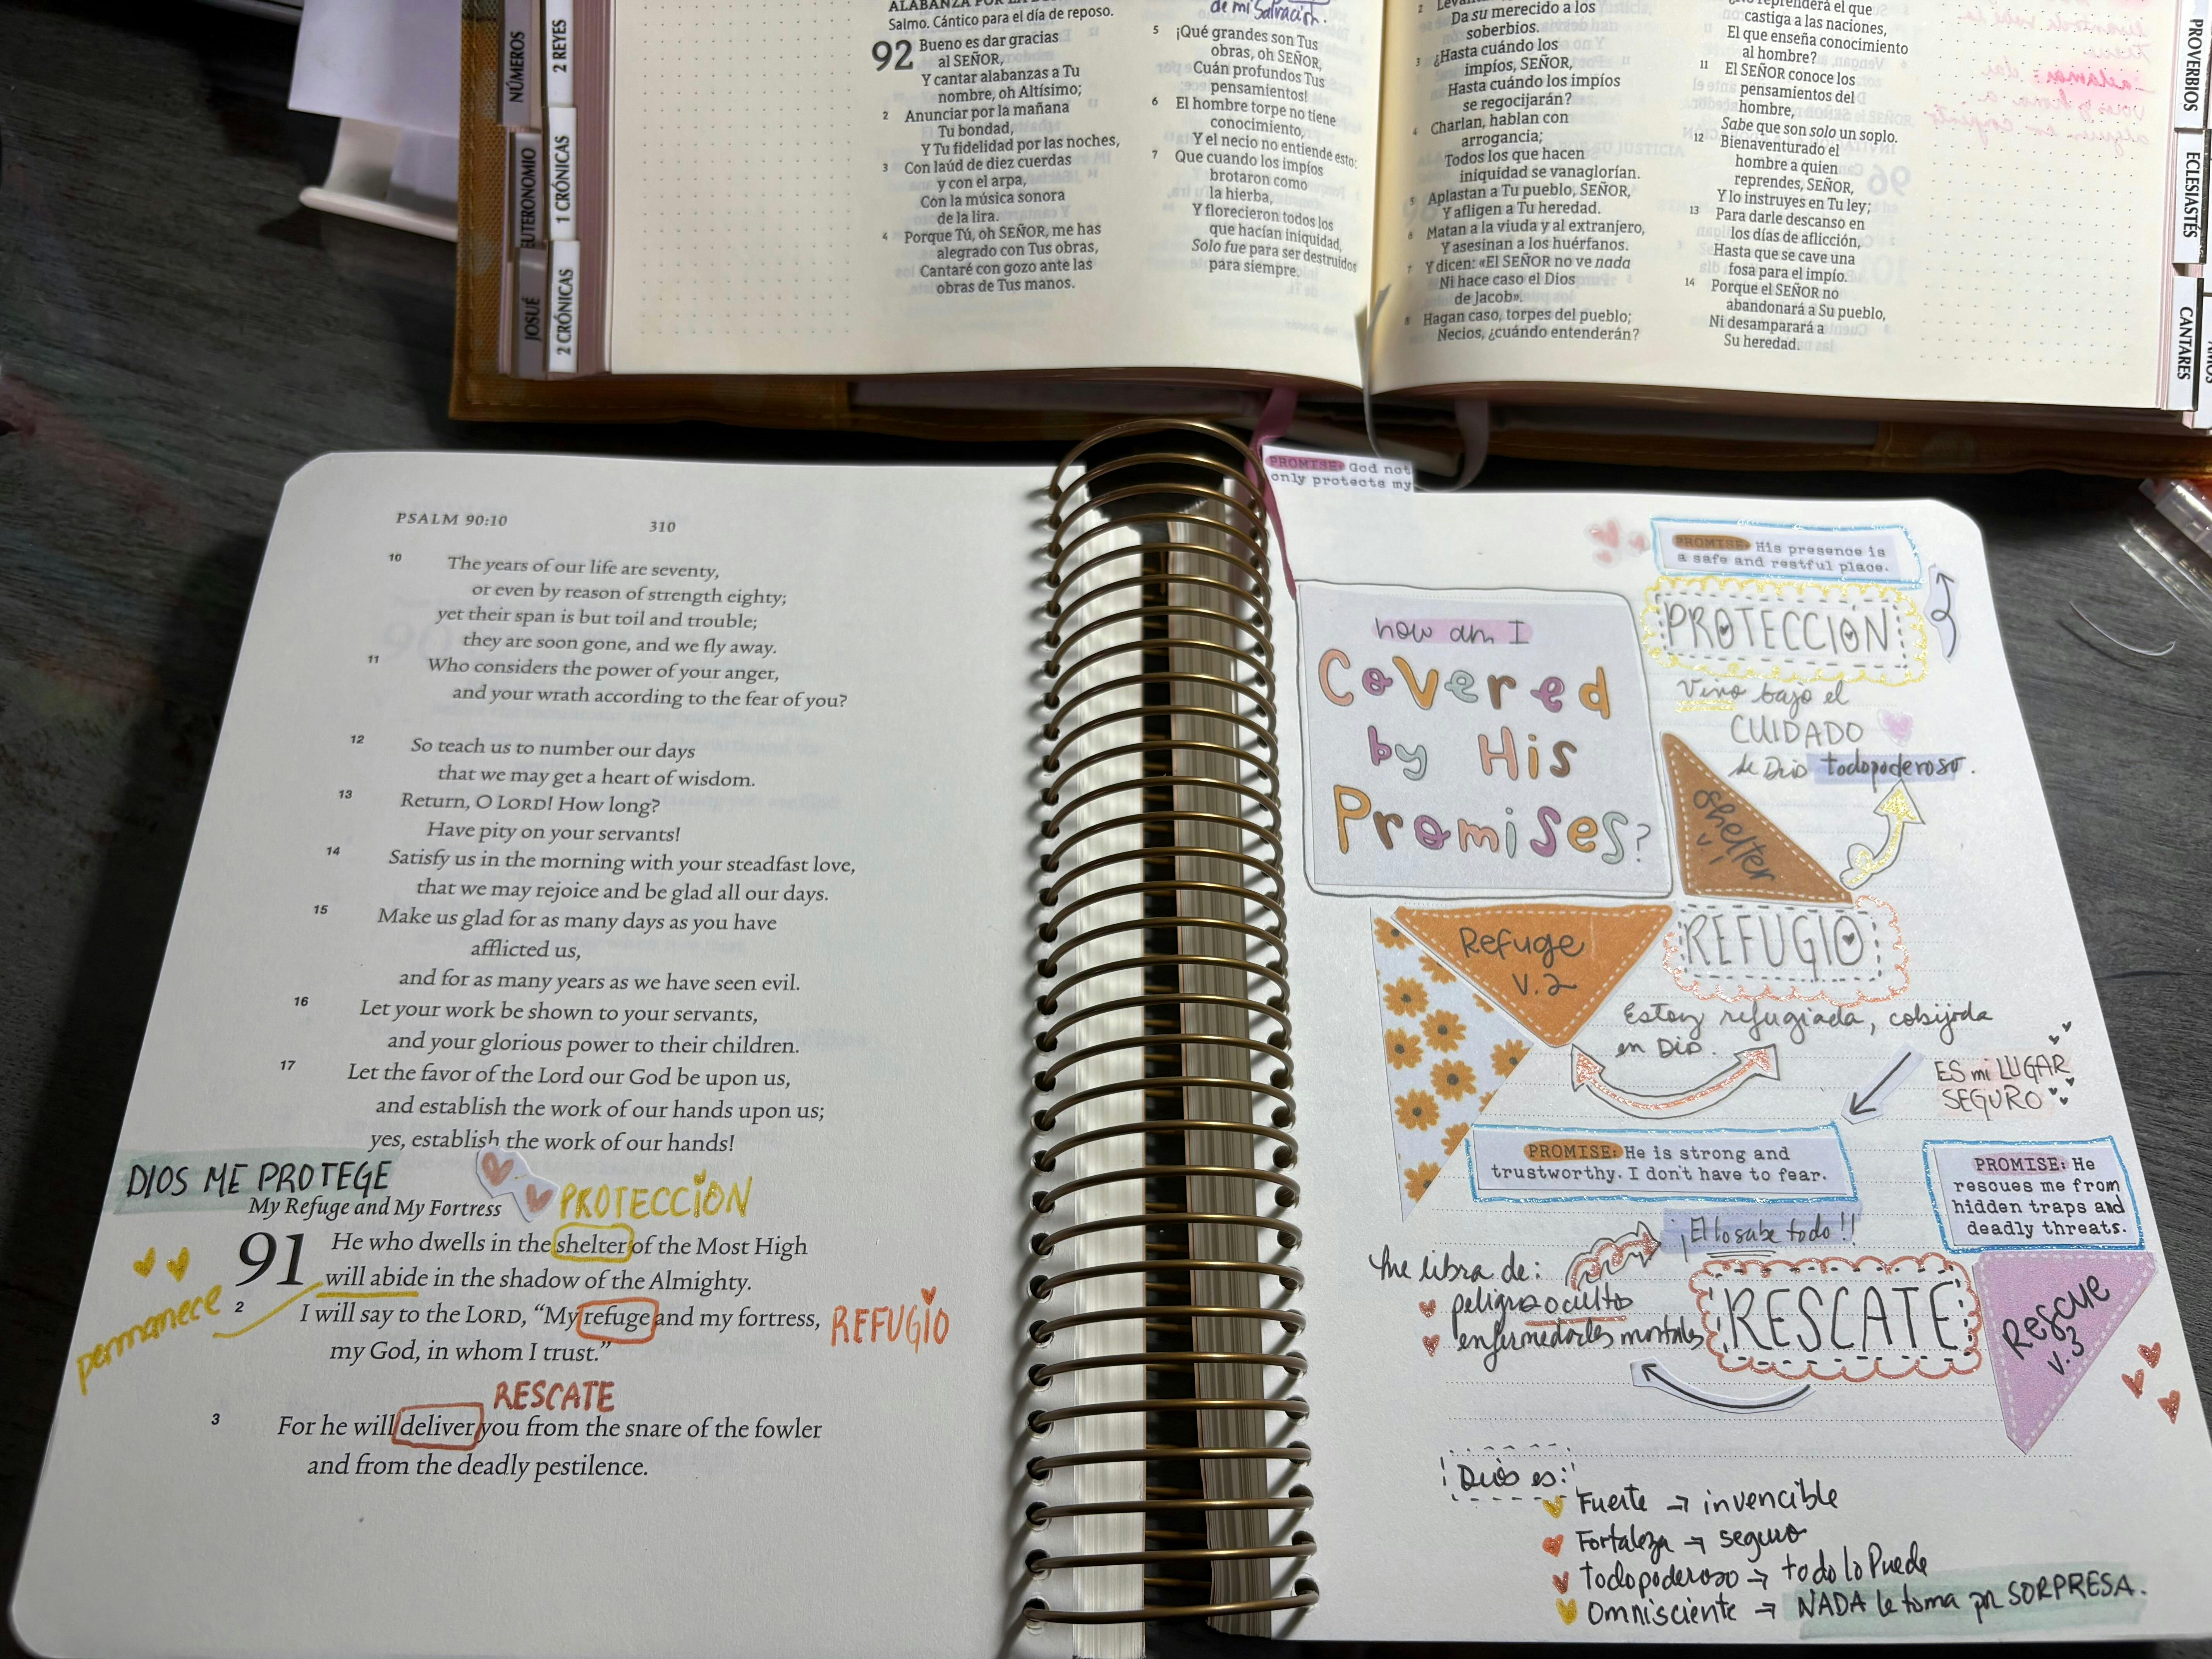 NÚMEROS
2 REYES
UTERONOMIO
1 CRÓNICAS
JOSUÉ
2 CRÓNICAS
Salmo. Cántico para el día de reposo.
92 Bueno es dar gracias
al SEÑOR,
Y cantar alabanzas a Tu
nombre, oh Altísimo;
2 Anunciar por la mañana
Tu bondad,
Y Tu fidelidad por las noches,
3 Con laúd de diez cuerdas
y con el arpa,
Con la música sonora
de la lira.
4 Porque Tú, oh SEÑOR, me has
alegrado con Tus obras,
Cantaré con gozo ante las
obras de Tus manos.
de mi Salvación.
5 ¡Qué grandes son Tus
obras, oh SEÑOR,
Cuán profundos Tus
pensamientos!
6 El hombre torpe no tiene
conocimiento,
Y el necio no entiende esto:
7 Que cuando los impíos
brotaron como
la hierba,
Y florecieron todos los
que hacían iniquidad,
Solo fue para ser destruidos
para siempre.
Da su merecido a los
soberbios.
3 ¿Hasta cuándo los
impíos, SEÑOR,
Hasta cuándo los impíos
se regocijarán?
4 Charlan, hablan con
arrogancia;
Todos los que hacen
iniquidad se vanaglorían.
5 Aplastan a Tu pueblo, SEÑOR,
Y afligen a Tu heredad.
6 Matan a la viuda y al extranjero,
Y asesinan a los huérfanos.
7 Y dicen: «El SEÑOR no ve nada
Ni hace caso el Dios
de Jacob».
8 Hagan caso, torpes del pueblo;
Necios, ¿cuándo entenderán?
reprenderá el que
castiga a las naciones,
El que enseña conocimiento
al hombre?
11 El SEÑOR conoce los
pensamientos del
hombre,
Sabe que son solo un soplo.
12 Bienaventurado el
hombre a quien
reprendes, SEÑOR,
Y lo instruyes en Tu ley;
13 Para darle descanso en
los días de aflicción,
Hasta que se cave una
fosa para el impío.
14 Porque el SEÑOR no
abandonará a Su pueblo,
Ni desamparará a
Su heredad.
PROVERBIOS
ECLESIASTÉS
CANTARES
PSALM 90:10 310
10 The years of our life are seventy,
or even by reason of strength eighty;
yet their span is but toil and trouble;
they are soon gone, and we fly away.
11 Who considers the power of your anger,
and your wrath according to the fear of you?
12 So teach us to number our days
that we may get a heart of wisdom.
13 Return, O LORD! How long?
Have pity on your servants!
14 Satisfy us in the morning with your steadfast love,
that we may rejoice and be glad all our days.
15 Make us glad for as many days as you have
afflicted us,
and for as many years as we have seen evil.
16 Let your work be shown to your servants,
and your glorious power to their children.
17 Let the favor of the Lord our God be upon us,
and establish the work of our hands upon us;
yes, establish the work of our hands!
DIOS ME PROTEGE
My Refuge and My Fortress
PROTECCIÓN
91 He who dwells in the shelter of the Most High
will abide in the shadow of the Almighty.
permanece
2 I will say to the LORD, “My refuge and my fortress,
REFUGIO
my God, in whom I trust.”
RESCATE
3 For he will deliver you from the snare of the fowler
and from the deadly pestilence.
PROMISE: God not
only protects my
how am I
Covered
by His
Promises?
PROMISE: His presence is
a safe and restful place.
PROTECCIÓN
Vivo bajo el
CUIDADO
de Dios todopoderoso.
Shelter
v.1
Refuge
v.2
REFUGIO
Estoy refugiada, cobijada
en Dios.
ES mi LUGAR
SEGURO
PROMISE: He is strong and
trustworthy. I don't have to fear.
PROMISE: He
rescues me from
hidden traps and
deadly threats.
¡El lo sabe todo!!
Me libra de:
peligro oculto
enfermedades mortales
RESCATE
Rescue
v.3
Dios es:
Fuerte → invencible
Fortaleza → seguro
todopoderoso → todo lo Puede
Omnisciente → NADA le toma por SORPRESA.